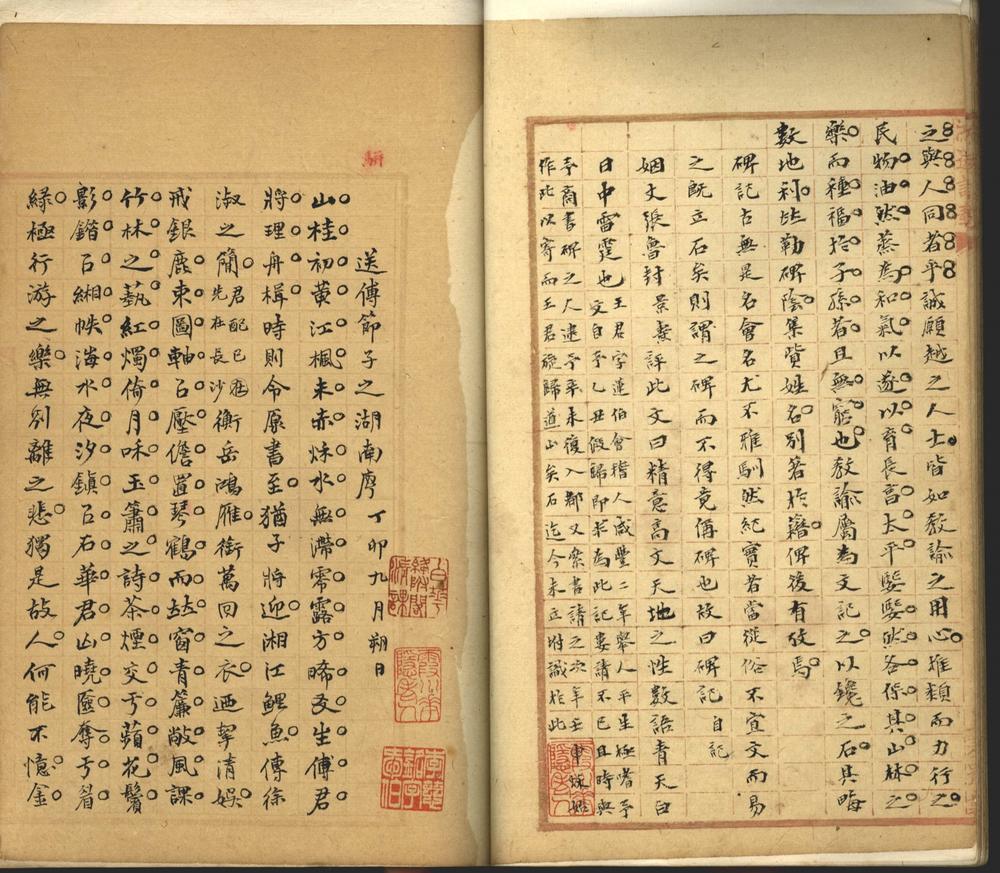 之與人同者乎誠願越之人士皆如教諭之用心推類而力行之
民物油然蒸為和氣以遂以育長富太平熙熙然各保其山林之
樂而種福於子孫者且無窮也教諭屬為文記之以鑱之石其畮
數地利皆勒碑陰集貲姓名別著於籍俾後有攷焉
碑記古無是名會名尤不雅馴然紀實者當從俗不宜文而易
之既立石矣則謂之碑而不得竟偁碑也故曰碑記自記
姻丈張魯封景燾評此文曰精意高文天地之性數語青天白
日中雷霆也
王君字蓮伯會稽人咸豐二年舉人平生極嗜予
文自予乙丑假歸即求為此記婁請不已且時與
予商書碑之人逮予辛未復入都又索書請之次年王
作此以寄而王君旋歸道山矣石迄今未立附識於此
送傅節子之湖南序 丁卯九月朔日
山桂初黃江楓未赤秌水無滯零露方晞友生傅君
將理舟楫時則令原書至猶子將迎湘江鯉魚傳徐
淑之簡
君配已
先在長沙
衡岳鴻雁銜萬回之衣迺挈清娛
戒銀鹿束圖軸㠯壓儋置琴鶴而敂窗青簾敞風課
竹林之蓺紅燭倚月咊玉簫之詩茶煙交兮蘋花鬢
影鍇㠯緗帙海水夜汐鎮㠯石華君山曉匳奪兮眉
綠極行游之樂無別離之悲獨是故人何能不憶金
白華絳柎閣清課
霞川華隱主人